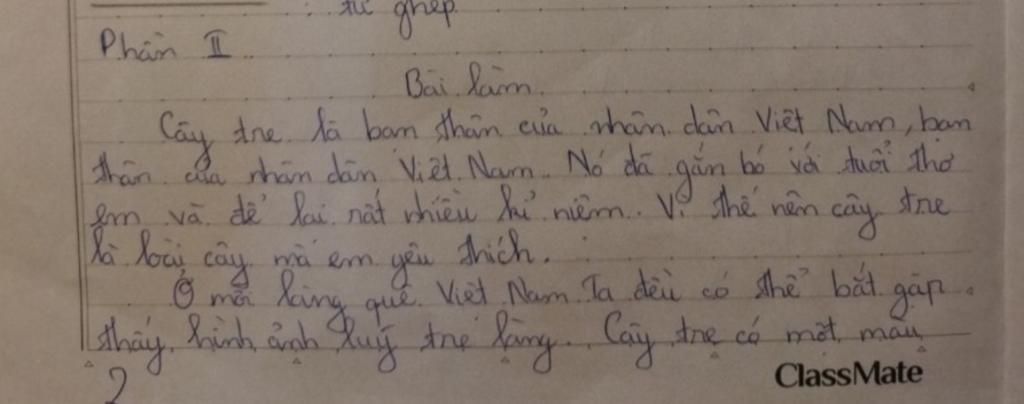 từ ghép
Phần II
Bài làm
Cây tre là bạn thân của nhân dân Việt Nam, bạn
thân của nhân dân Việt Nam. Nó đã gắn bó với tuổi thơ
em và để lại rất nhiều kỉ niệm. Vì thế nên cây tre
là loài cây mà em yêu thích.
Ở mỗi làng quê Việt Nam Ta đều có thể bắt gặp
thấy hình ảnh luỹ tre làng. Cây tre có một màu
2
ClassMate